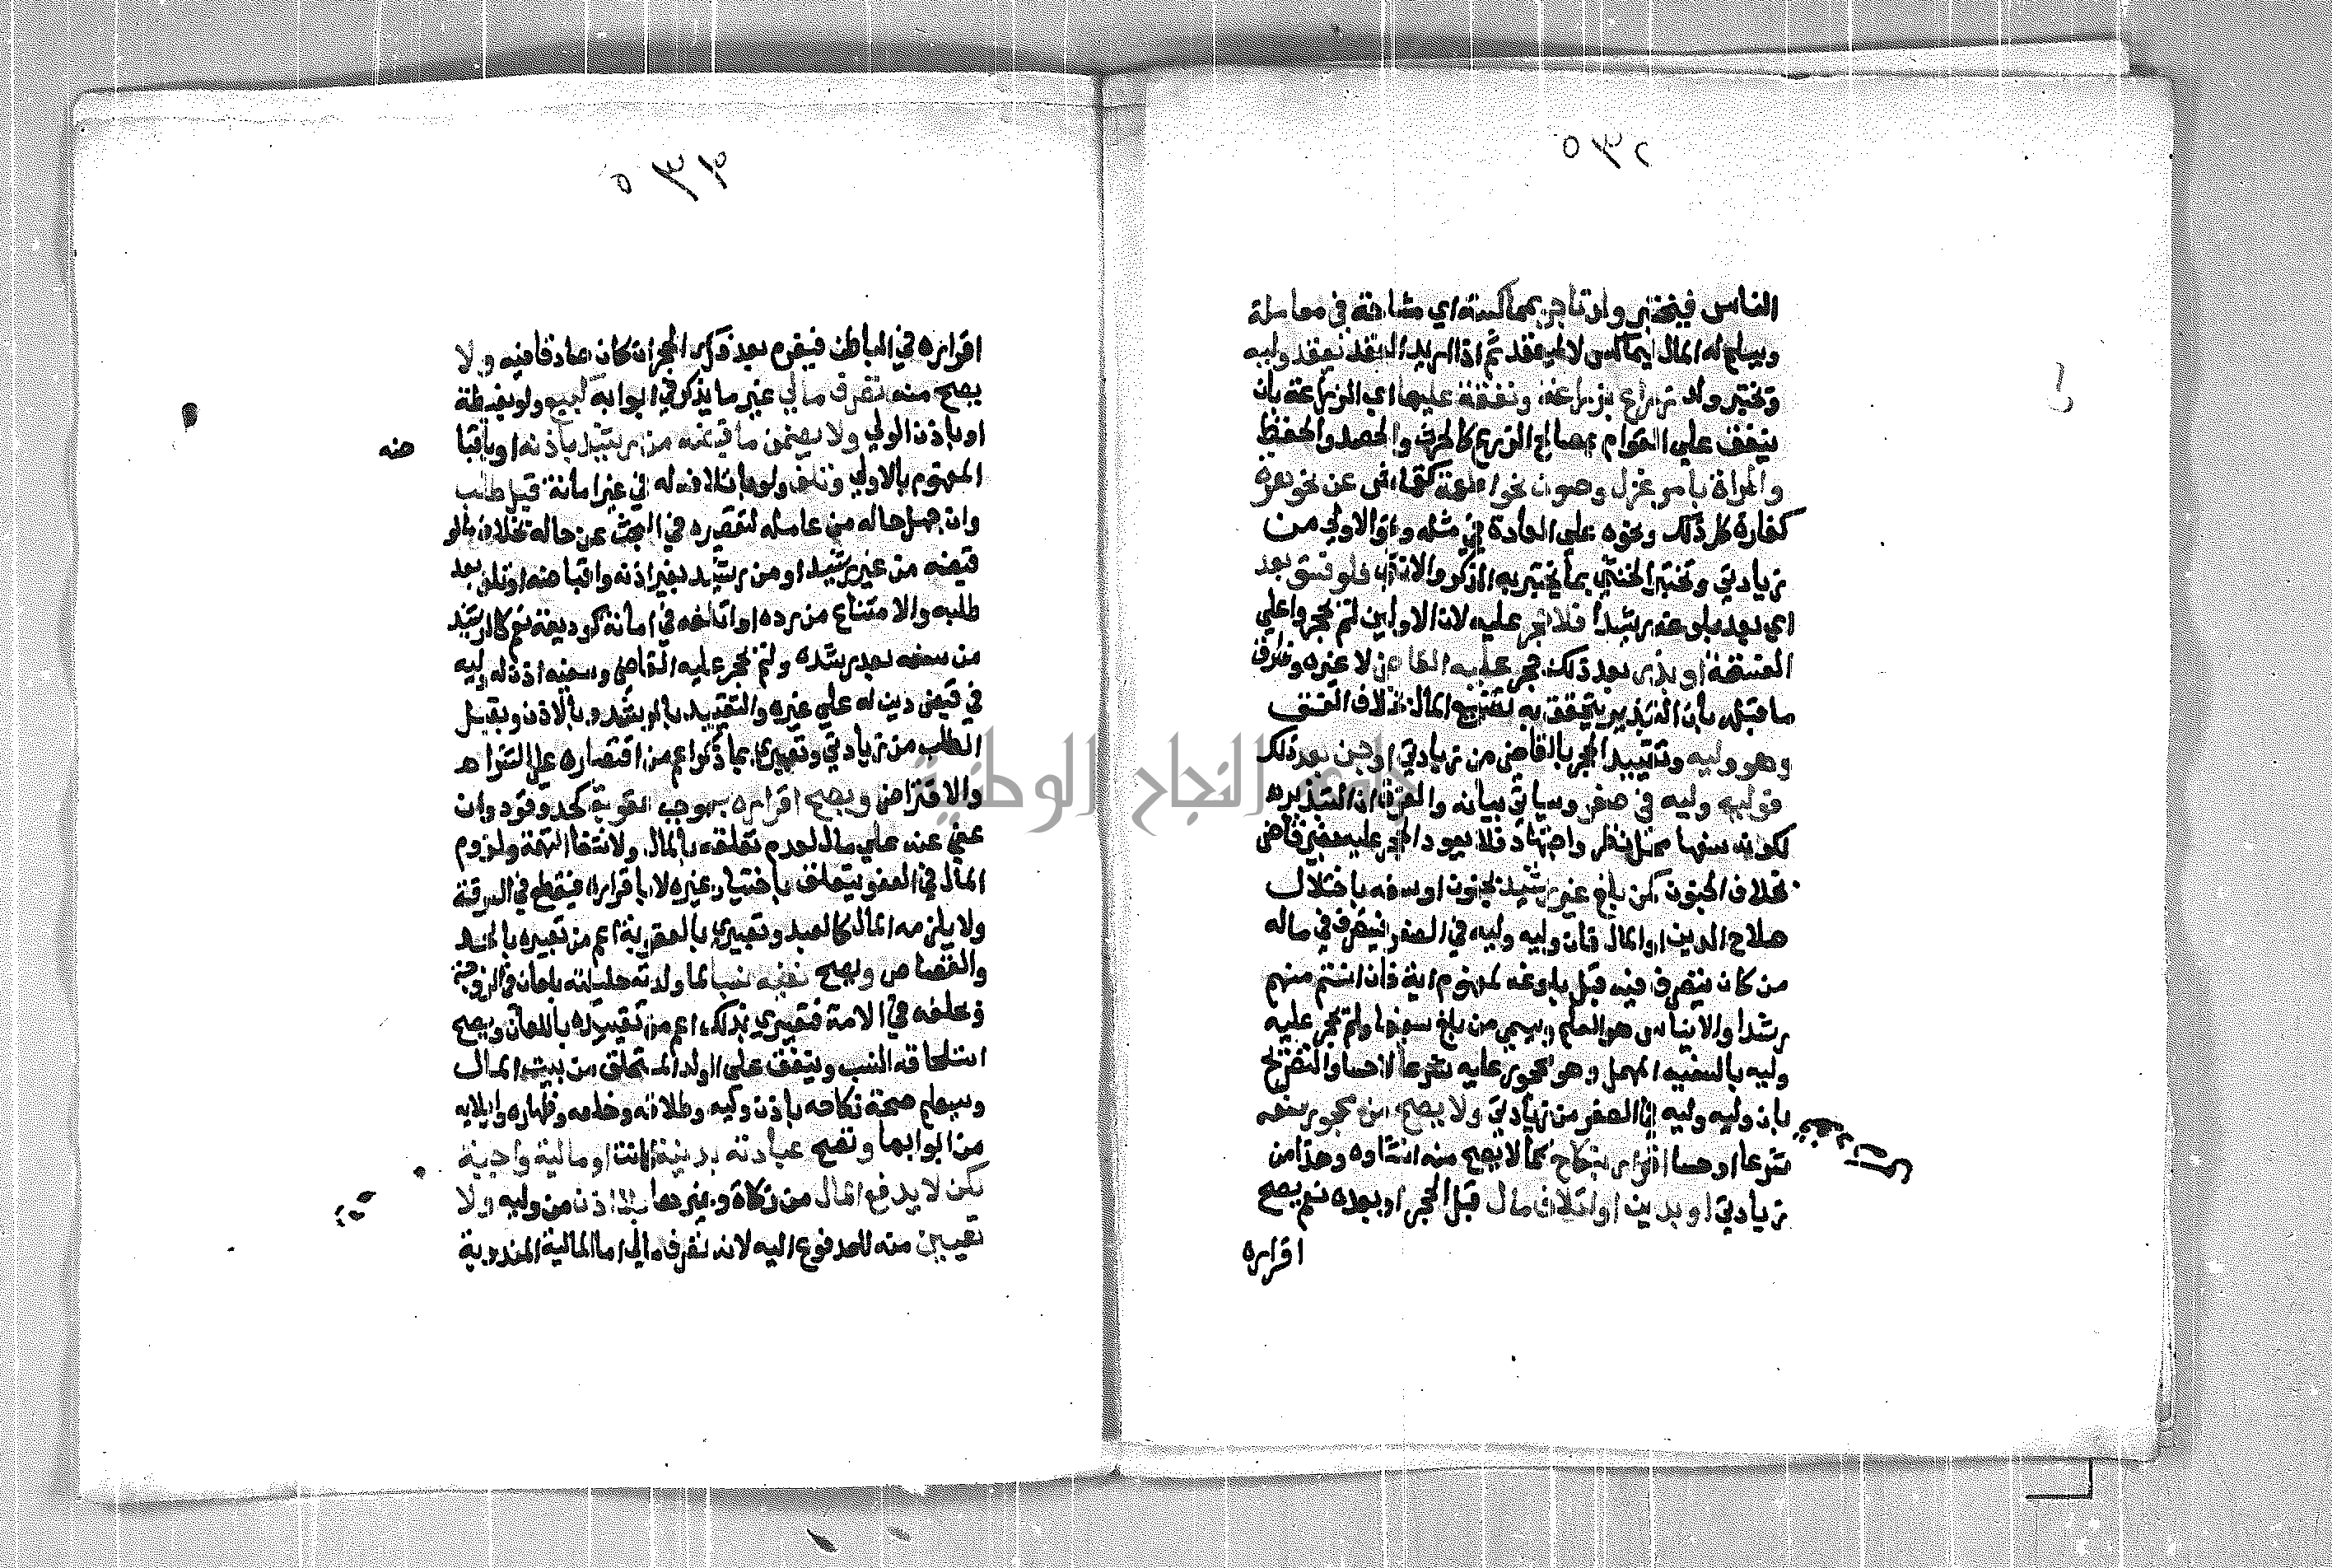 ٥٣٢
الناس فيختبر ولد تاجر بمماكسة اي مشاححة في معاملة
ويسلم له المال ليماكس لا ليعقد ثم اذا اريد العقد يعقد وليه
ويختبر ولد زراع بزراعة ونفقة عليها اي الزراعة بان
ينفق علي القوام بمصالح الزرع كالحرث والحصد والحفظ
والمراة بامر غزل وصون نحو اطعمة كقماش عن نحو هرة
كفارة كل ذلك ونحوه علي العادة في مثله و او الاولي من
زيادتي ويختبر الخنثي بما يختبر به الذكر والانثي فلو فسق بعد
اي بعد بلوغه رشيدا فلا حجر عليه لان الاولين لم يحجروا علي
الفسقة او بذر بعد ذلك حجر عليه القاضي لا غيره وفارق
ما قبله بان التبذير يتحقق به تضييع المال بخلاف الفسق
وهو وليه وتقييد الحجر بالقاضي من زيادتي او جن بعد ذلك
فوليه وليه في صغر وسياتي بيانه والفرق ان التبذير
لكونه سفها محل نظر واجتهاد فلا يعود الحجر عليه بغير قاض
بخلاف الجنون كمن بلغ غير رشيد بجنون او سفه باختلال
صلاح الدين او المال فان وليه وليه في الصغر فيتصرف في ماله
من كان يتصرف فيه قبل بلوغه لمفهوم اية فان انستم منهم
رشدا والايناس هو العلم ويسمي من بلغ سفيها ولم يحجر عليه
وليه بالسفيه المهمل وهو محجور عليه شرعا لا حسا والتصريح
بان وليه وليه في الصغر من زيادتي ولا يصح من محجور سفه
شرعا او حسا اقرار بنكاح كما لا يصح منه انشاوه وهذا من
زيادتي او بدين او اتلاف مال قبل الحجر او بعده نعم يصح
اقراره
٥٣٣
اقراره في الباطن فيغرم بعد فك الحجر ان كان صادقا فيه ولا
يصح منه تصرف مالي غير ما يذكر في ابوابه كبيع ولو بغبطة
او باذن الولي ولا يضمن ما قبضه من رشيد باذنه او باقباضه
المفهوم بالاولي وتلف ولو باتلافه له في غير امانة قبل طلب
وان جهل حاله من عامله لتقصيره في البحث عن حاله بخلاف ما لو
قبضه من غير رشيد او من رشيد بغير اذنه واقباضه او تلف بعد
طلبه والامتناع من رده او اتلفه في امانة كوديعة نعم كالرشيد
من سفه بعد رشده ولم يحجر عليه القاضي وسفيه اذن له وليه
في قبض دين له علي غيره والتقييد بالرشد وبالاذن وبقبل
الطلب من زيادتي وتعبيري بما ذكر اعم من اقتصاره علي الشراء
والاقتراض ويصح اقراره بموجب عقوبة كحد وقود وان
عفي عنه علي مال لعدم تعلقه بالمال ولانتفا التهمة ولزوم
المال في العفو يتعلق باختيار غيره لا باقراره فيقطع في السرقة
ولا يلزمه المال كالعبد وتعبيري بالعقوبة اعم من تعبيره بالحد
والقصاص ويصح نفيه نسبا لما ولدته حليلته بلعان في الزوجة
وبحلفه في الامة فتعبيري بذلك اعم من تعبيره باللعان ويصح
استلحاقه النسب وينفق علي الولد المستلحق من بيت المال
وسيعلم صحة نكاحه باذن وليه وطلاقه وخلعه وظهاره وايلايه
من ابوابها وتصح عبادته بدنية كانت او مالية واجبة
لكن لا يدفع المال من زكاة وغيرها بلا اذن من وليه ولا
تعيين منه للمدفوع اليه لانه تصرف مالي اما المالية المندوبة
جامعة النجاح الوطنية